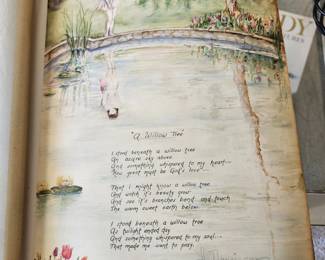 DY
"A Willow Tree"
I stood beneath a willow tree
An azure sky above
And something whispered to my heart—
How great must be God's love—
That I might know a willow tree
And watch it's beauty grow
And see it's branches bend and touch
The warm sweet earth below.
I stood beneath a willow tree
As twilight ended day
And something whispered to my soul—
That made me want to pray.